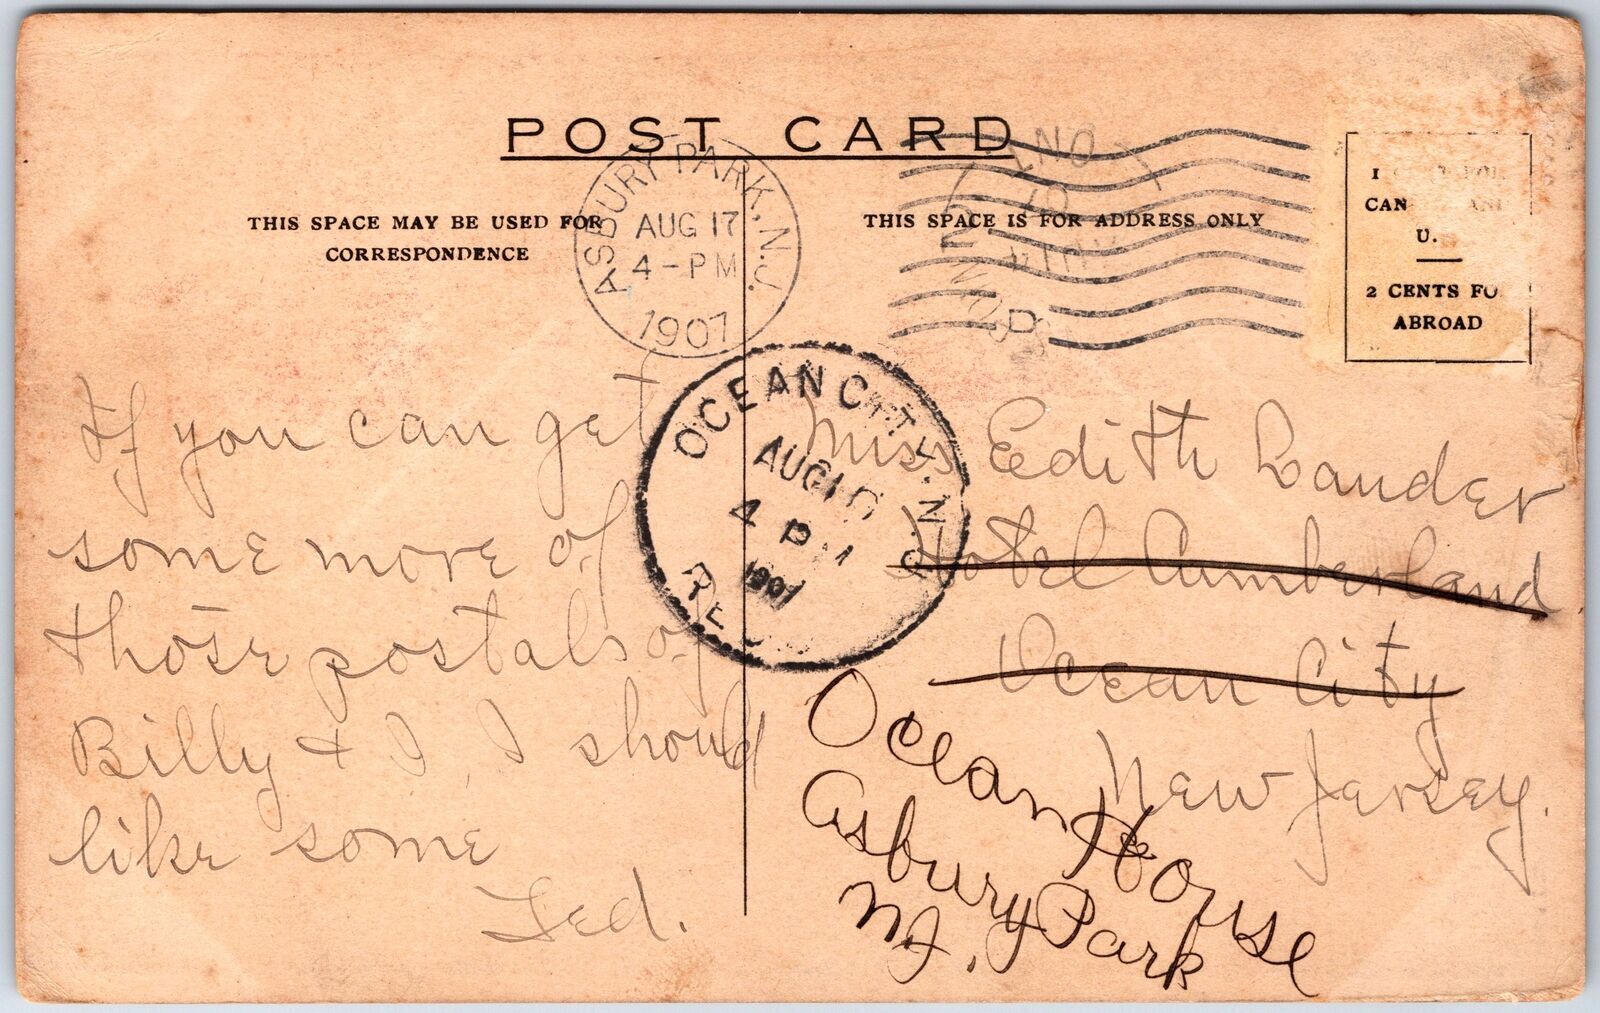 POST CARD
THIS SPACE MAY BE USED FOR
CORRESPONDENCE
THIS SPACE IS FOR ADDRESS ONLY
ASBURY PARK, N.J.
AUG 17
4-PM
1907
ONT
D
1
CAN
U.
2 CENTS FO
ABROAD
OCEAN CITY, N
AUG
4 PM
1907
If you can get
some more of
those postals of
Billy & I, I should
like some
Ted.
Miss Edith Lauder
Hotel Cumberland
Ocean City
New Jersey.
Ocean House
Asbury Park
N.J.